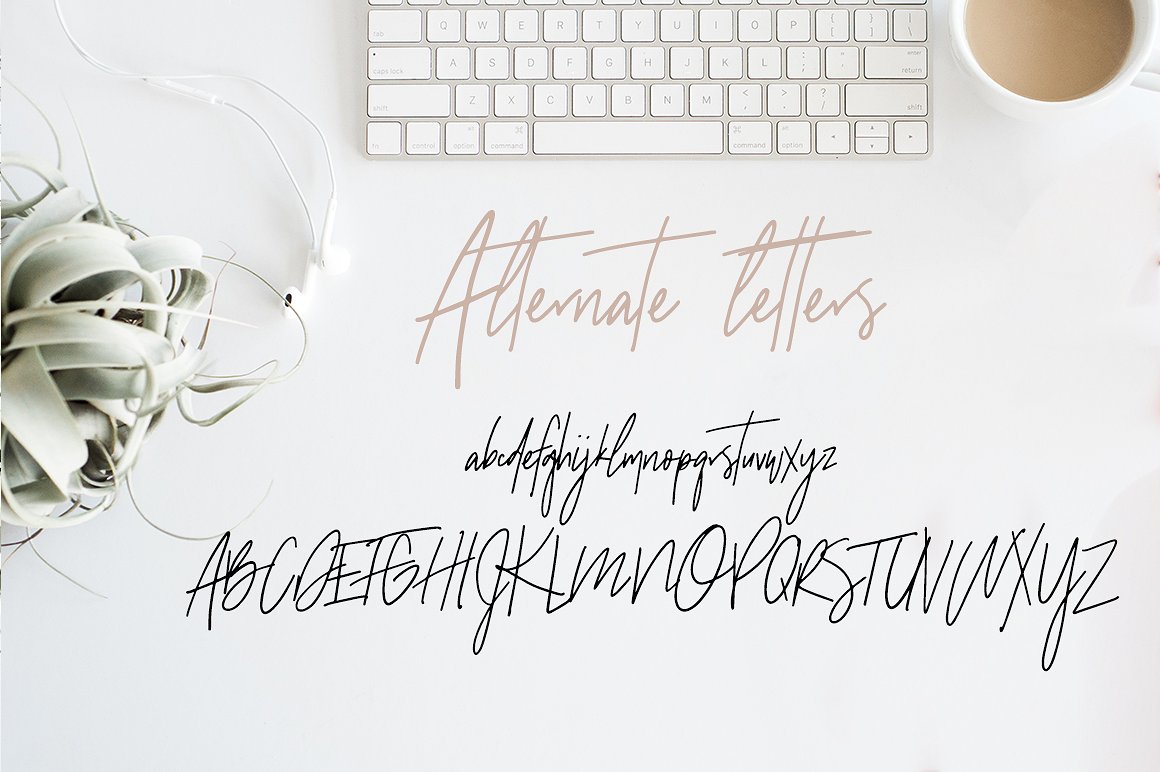 tab Q W E R T Y U I O P { [ } ] | \
caps lock A S D F G H J K L : ; " ' enter return
shift Z X C V B N M < , > . ? / shift
fn control alt option ⌘ command ⌘ command alt option
Alternate letters
abcdefghijklmnopqrstuvwxyz
ABCDEFGHIJKLMNOPQRSTUVWXYZ